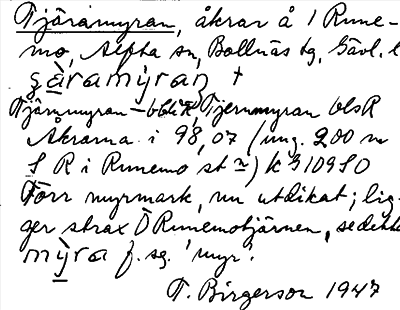 Tjäramyran, åkrar å 1 Rune-
mo, Alfta sn, Bollnäs tg, Gävl. l
Tjärnmyran – obl.R, Tjernmyran ObsR
Åkrarna i 98,07 (ung. 200 m
S R i Runemo st n) k 3109 S O
Förr myrmark, nu utdikat; lig-
ger strax Ö Runemotjärnen, se detta
myra f. sg. 'myr'.
T. Birgerson 1947